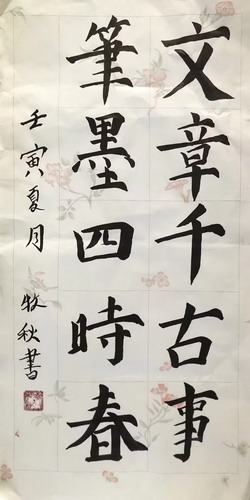 文章千古事
筆墨四時春
壬寅夏月 牧秋書